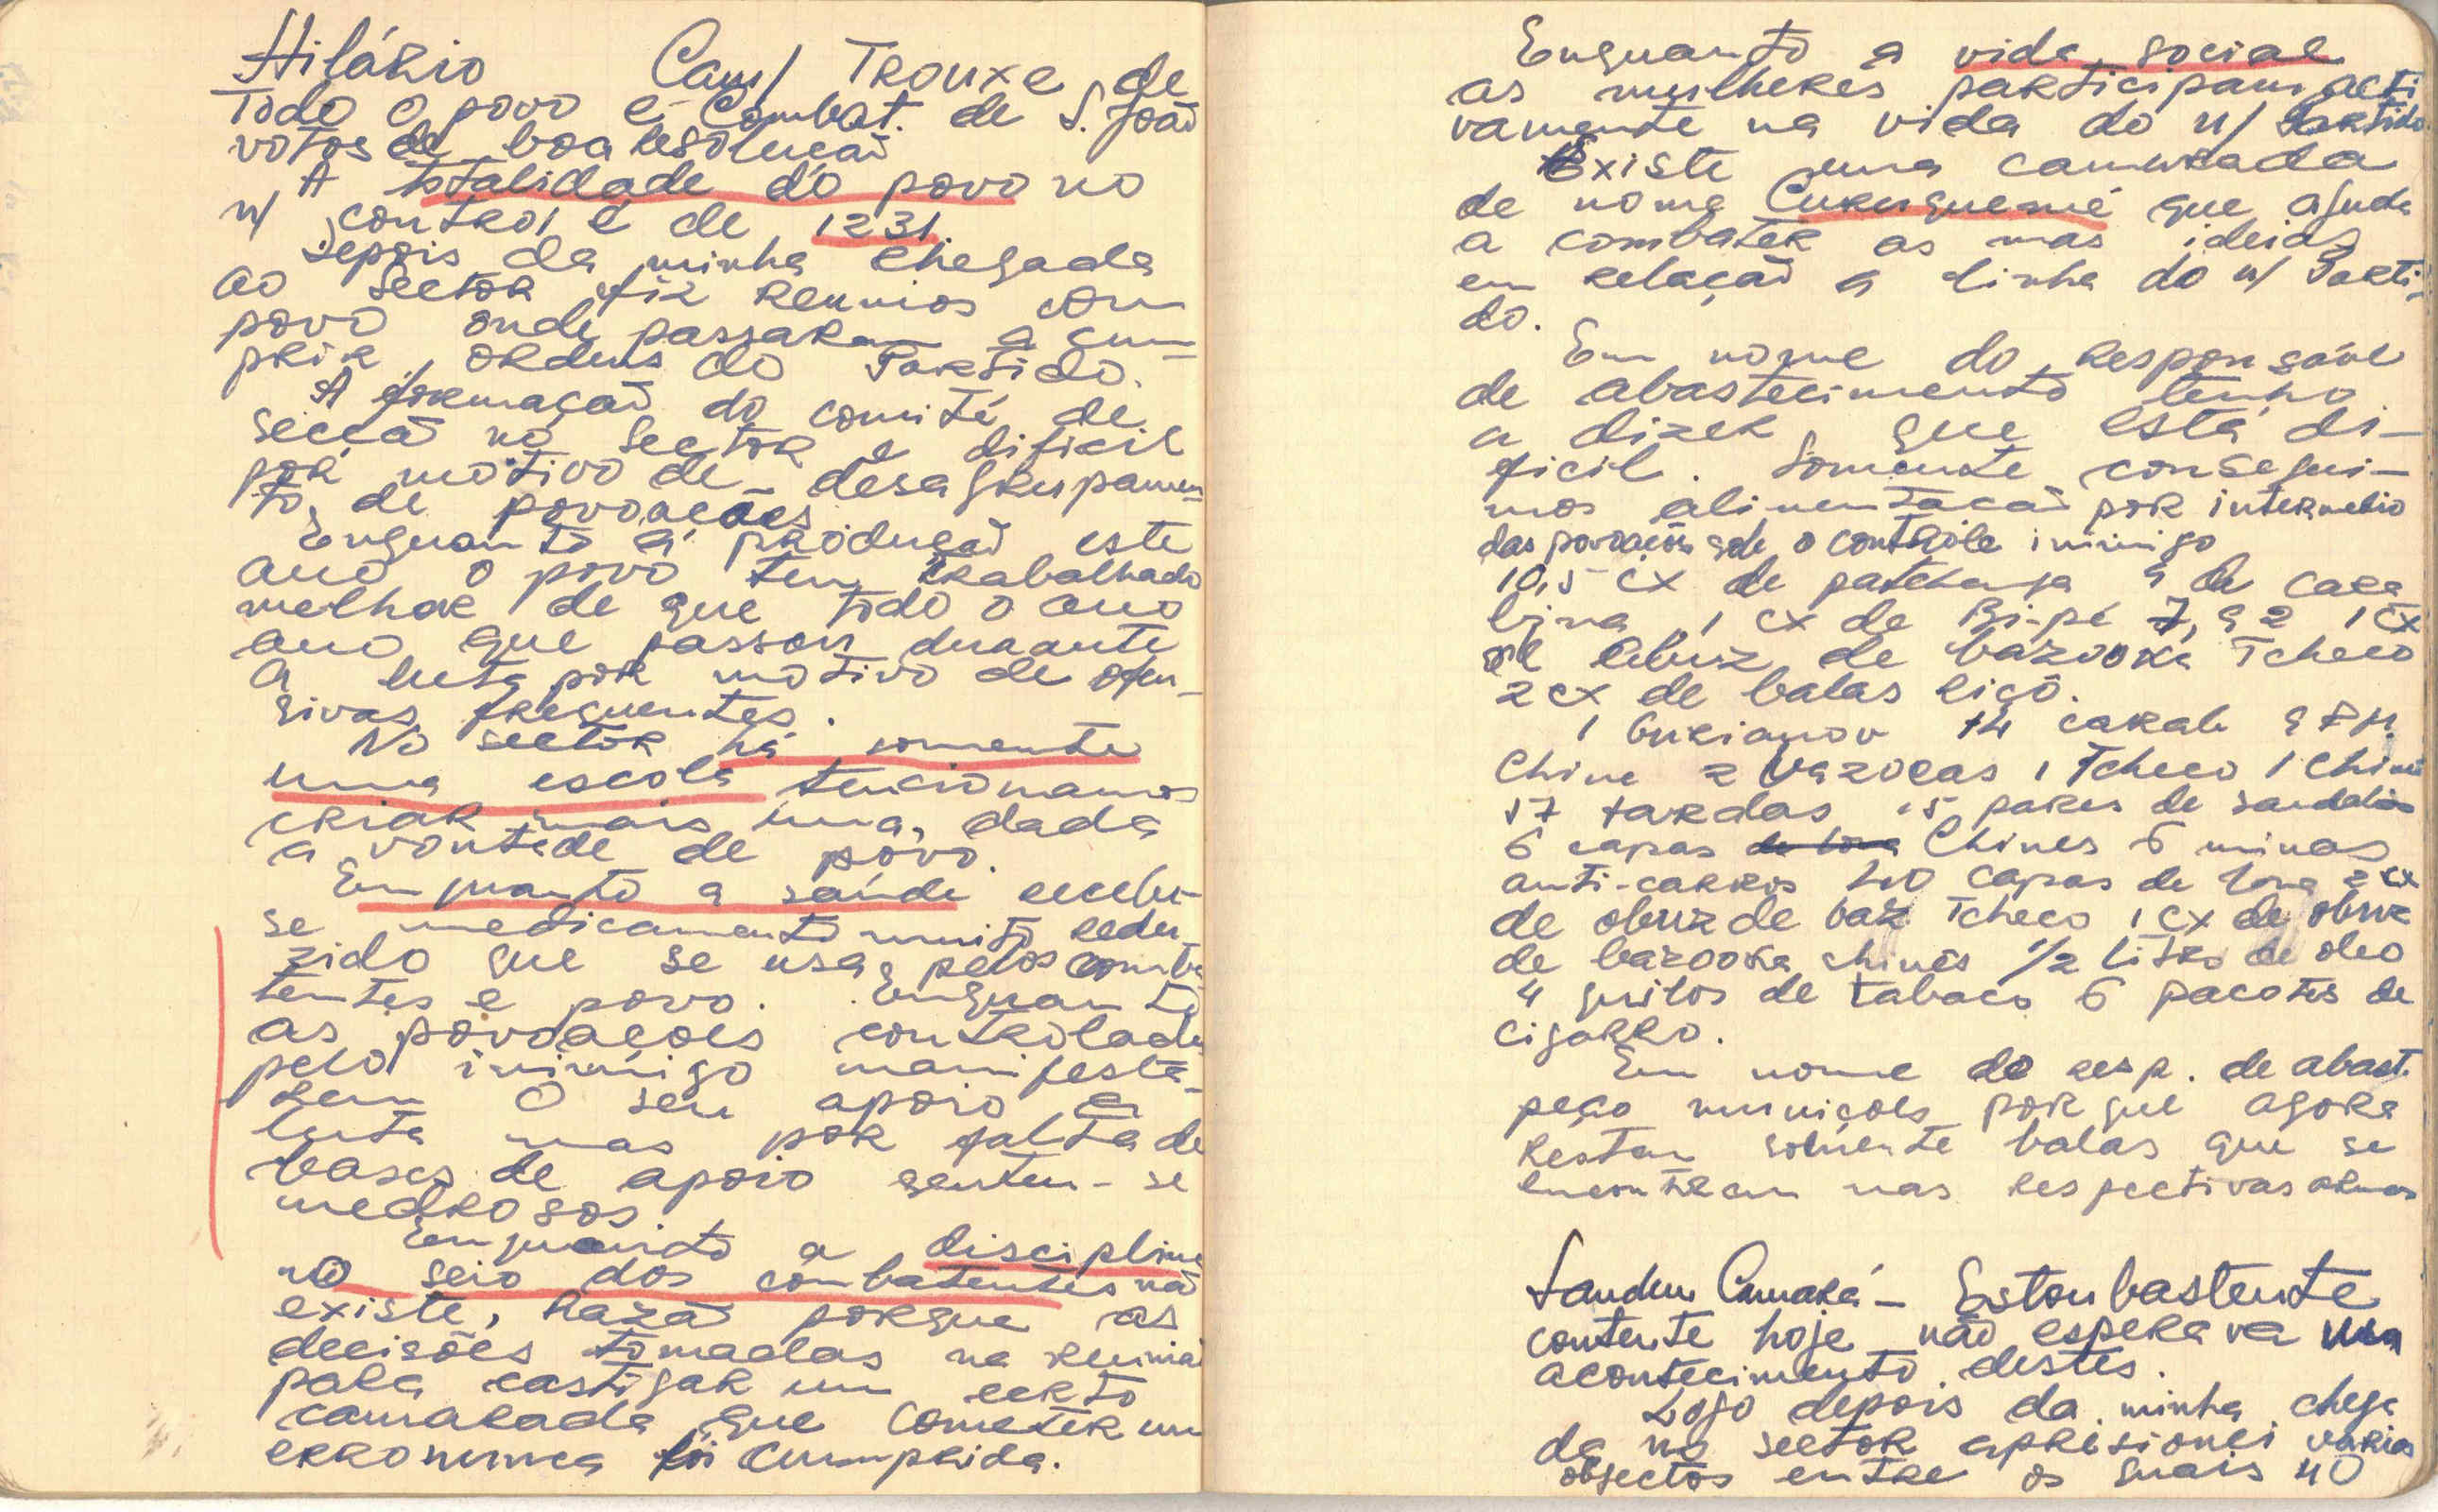 Hilário Cam/ Trouxe de
Todo o povo e Combat. de S. João
votos de boa resolução
A totalidade do povo no
n/ controi é de 1231.
Depois da minha chegada
ao sector fiz reunios com
povo onde passaram a cum-
prir ordens do Partido.
A formação do comité de
secçã no sector e dificil
por motivo de desagrupamen
to, de povoações
Enquanto a produção este
ano o povo tem trabalhado
melhor de que todo o ano
ano que passou durante
a luta por motivo de ofen-
sivas frequentes.
No sector há somente
uma escola tencionamos
criar mais uma, dada
a vontade de povo.
Enquanto a saúde recebe-
se medicamento muito redu
zido que se usa pelos comba
tentes e povo. Enquanto
as povoações controlada
pelo inimigo manifesta-
rem o seu apoio a
luta mas por falta de
bases de apoio sentem-se
medrosos.
Enquanto a disciplina
no seio dos combatentes não
existe, razã porque as
decisões tomadas na reuniã
para castigar um certo
camarada que cometer um
erro nunca foi cumprida.
Enquanto a vida social
as mulheres participam acti
vamente na vida do n/ Partido
Existe uma camarada
de nome que ajuda
a combater as mas ideias
em relação a linha do n/ Parti-
do.
Em nome do responsável
de abastecimento tenho
a dizer, que está di-
ficil. Somente consegui-
mos alimentação por intermedio
das povoações sob o contrôle inimigo
10,5 cx de patchanga 9 de cara
bina, 1 cx de Bi-pé 7, 9 2 1 cx
de obuz de bazooka Tcheco
2 cx de balas ricô.
1 Gurianov 14 carab 9 PM.
Chine 2 bazocas 1 Tcheco 1 Chine
17 fardas 15 pares de sandalias
6 capas Chines 6 minas
anti-carros capas de lona 2 cx
de obuz de baz Tcheco 1 cx de obuz
de bazooka chinês 1/2 litro de oleo
4 quilos de tabaco 6 pacotes de
cigarro.
Em nome do resp. de abast.
peço munições porque agora
restam somente balas que se
encontram nas respectivas armas
Camará - Estou bastante
contente hoje não esperava um
acontecimento destes.
Logo depois da minha chega
da no sector aprisionei varios
objectos entre os quais 40